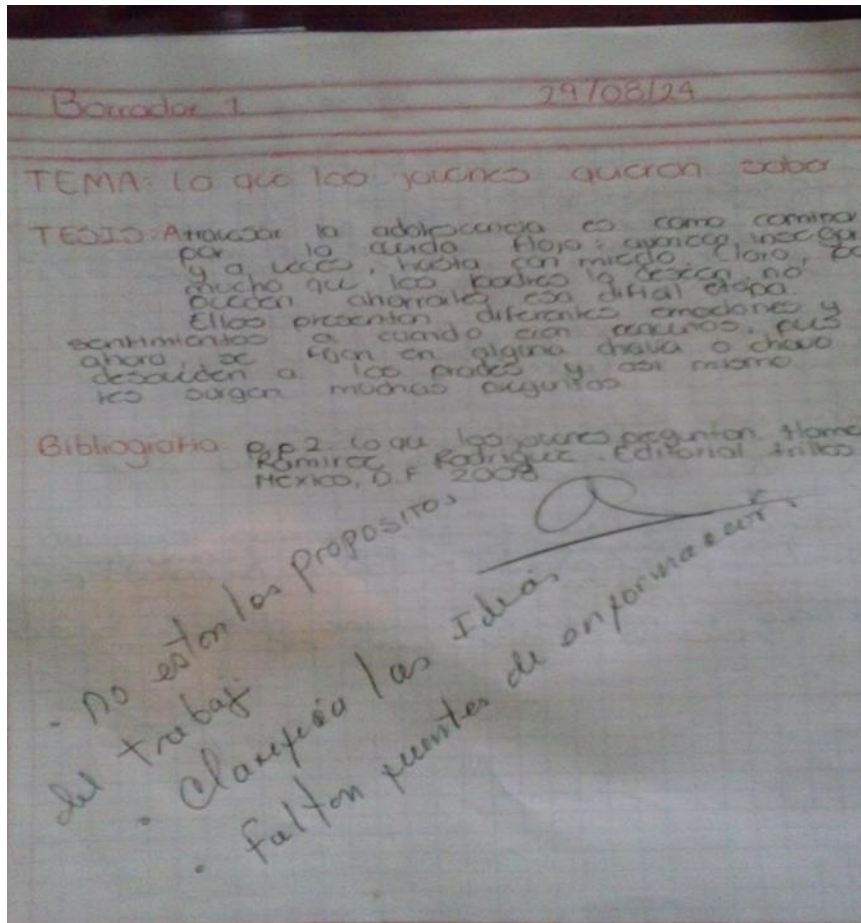 Borrador 1 29/08/24
TEMA: Lo que los jovenes quieren saber
TESIS: Atravesar la adolescencia es como caminar
por la cuerda floja:
y a veces, hasta con miedo. Claro,
mucho que los padres lo deseen, no
pueden ahorrarles esa dificil etapa.
Ellos presentan diferentes emociones y
sentimientos a cuando eran pus
ahora se fijan en alguna chava o chavo
descuiden a los y asi mismo
les surgen muchas
Bibliografia: Lo que los jovenes preguntan
Ramirez Rodriguez. Editorial trillas
Mexico, D.F 2008
- no estan los propositos
del trabajo
. las Ideas
. Faltan fuentes de